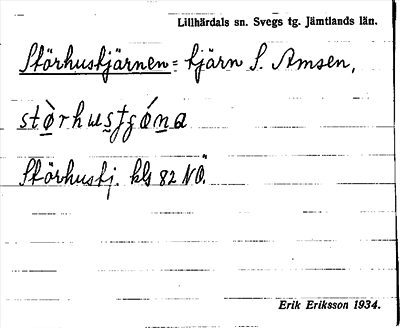 Lillhärdals sn. Svegs tg. Jämtlands län.
Störhustjärnen = tjärn S. Amsen,
stø̀rhustjǿna
Störhustj. kls 82 NÖ.
Erik Eriksson 1934.